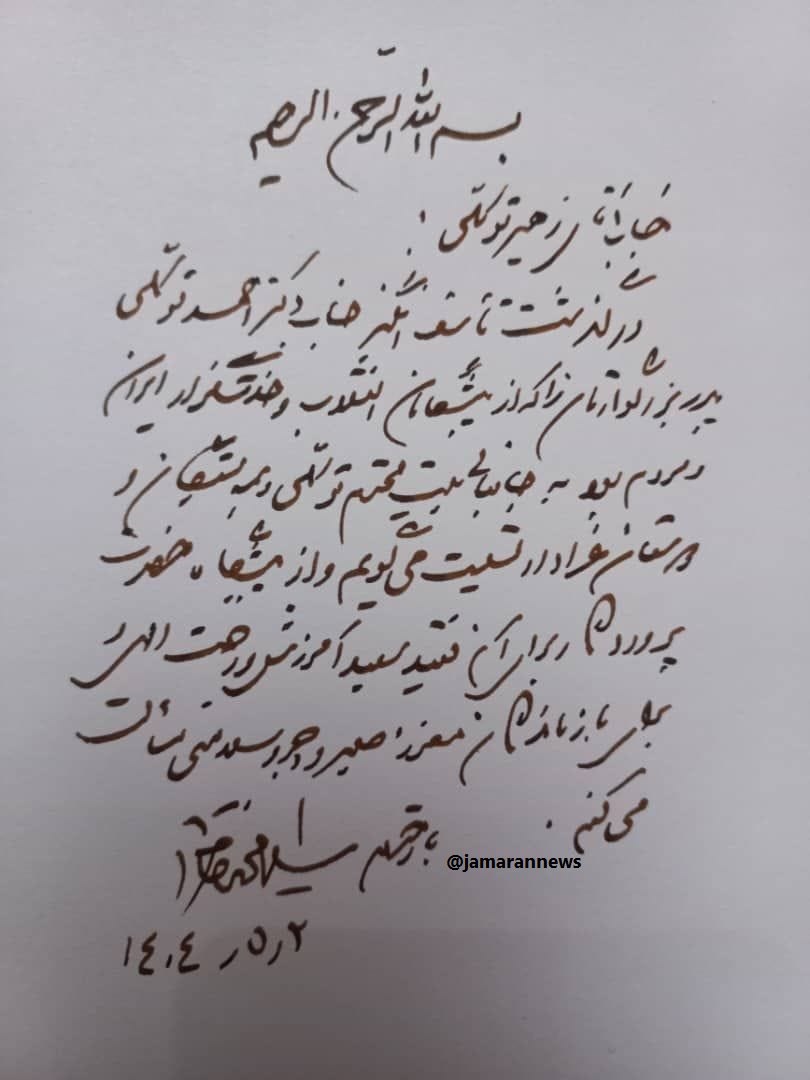 بسم الله الرّحمن الرحیم
جناب آقای زهیر توکلّی
درگذشت تأسف انگیز جناب دکتر احمد توکلّی
پدر بزرگوارتان را که از پیشگامان انقلاب و خدمتگزار ایران
و مردم بود به جنابعالی بیت محترم توکلّی و همه بستگان و
دوستان عزادار تسلیت می گویم و از پیشگاه حضرت
پروردگار برای آن فقید سعید آمرزش و رحمت الهی و
برای بازماندگان معزز صبر و اجر و سلامتی مسألت
می کنم .
با احترام سید محمد خاتمی
@jamarannews
۱۴۰۴ ر ۵ ر ۲